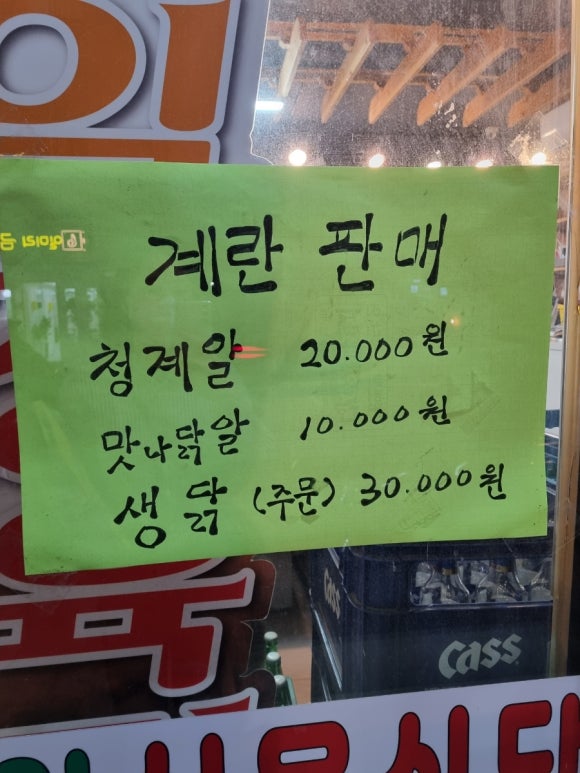 계란 판매
청계알 20.000원
맛나닭알 10.000원
생닭 (주문) 30.000원
Cass
Cass